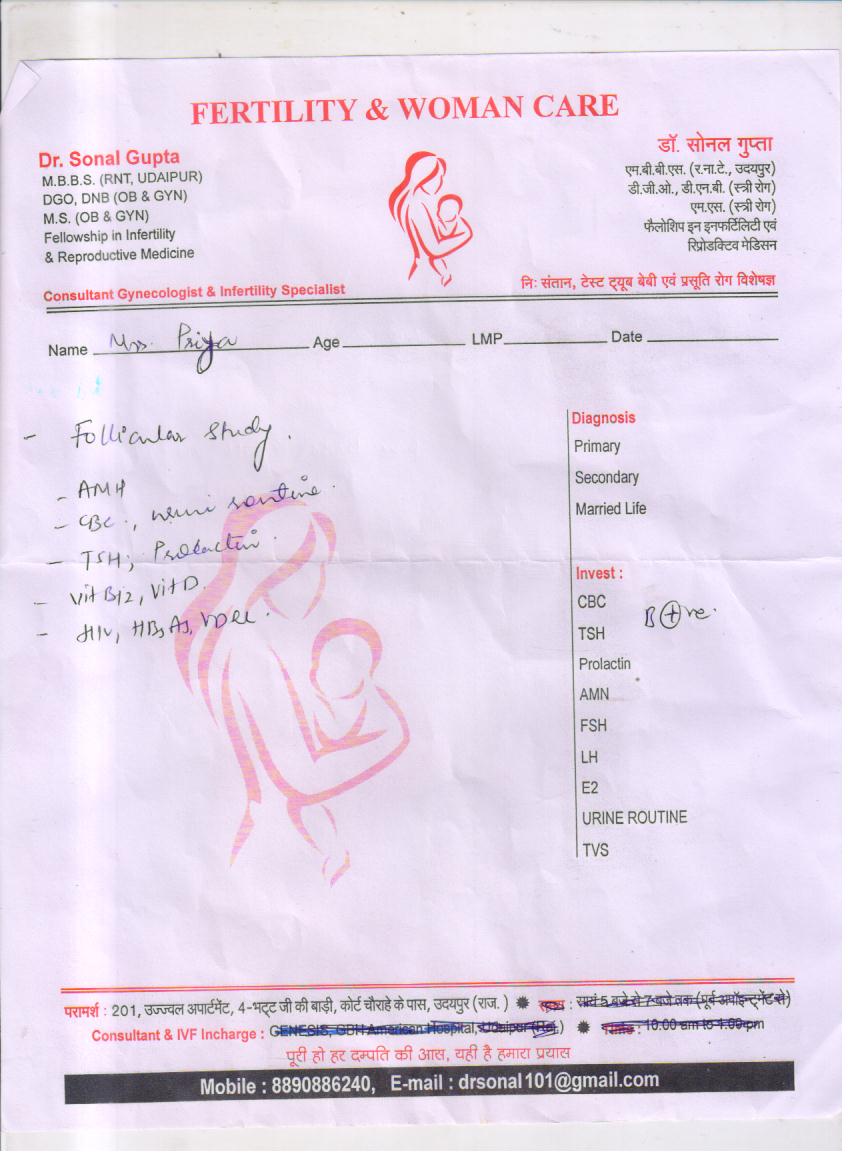 FERTILITY & WOMAN CARE
Dr. Sonal Gupta
M.B.B.S. (RNT, UDAIPUR)
DGO, DNB (OB & GYN)
M.S. (OB & GYN)
Fellowship in Infertility
& Reproductive Medicine
Consultant Gynecologist & Infertility Specialist
डॉ. सोनल गुप्ता
एम.बी.बी.एस. (र.ना.टे., उदयपुर)
डी.जी.ओ., डी.एन.बी. (स्त्री रोग)
एम.एस. (स्त्री रोग)
फैलोशिप इन इनफर्टिलिटी एवं
रिप्रोडक्टिव मेडिसन
निः संतान, टेस्ट ट्यूब बेबी एवं प्रसूति रोग विशेषज्ञ
Name Mrs. Priya Age LMP Date
- Follicular study.
- AMH
- CBC, urine routine.
- TSH, Prolactin.
- Vit B12, Vit D
- HIV, HBsAg, VDRL.
Diagnosis
Primary
Secondary
Married Life
Invest :
CBC
B +ve.
TSH
Prolactin
AMN
FSH
LH
E2
URINE ROUTINE
TVS
परामर्श : 201, उज्ज्वल अपार्टमेंट, 4-भट्ट जी की बाड़ी, कोर्ट चौराहे के पास, उदयपुर (राज.) : सायं 5 बजे से 7 बजे तक (पूर्व अपॉइन्टमेंट से)
Consultant & IVF Incharge : GENESIS, GBH American Hospital, Udaipur (Raj.) : 10.00 am to 4.00 pm
पूरी हो हर दम्पति की आस, यही है हमारा प्रयास
Mobile : 8890886240, E-mail : drsonal101@gmail.com